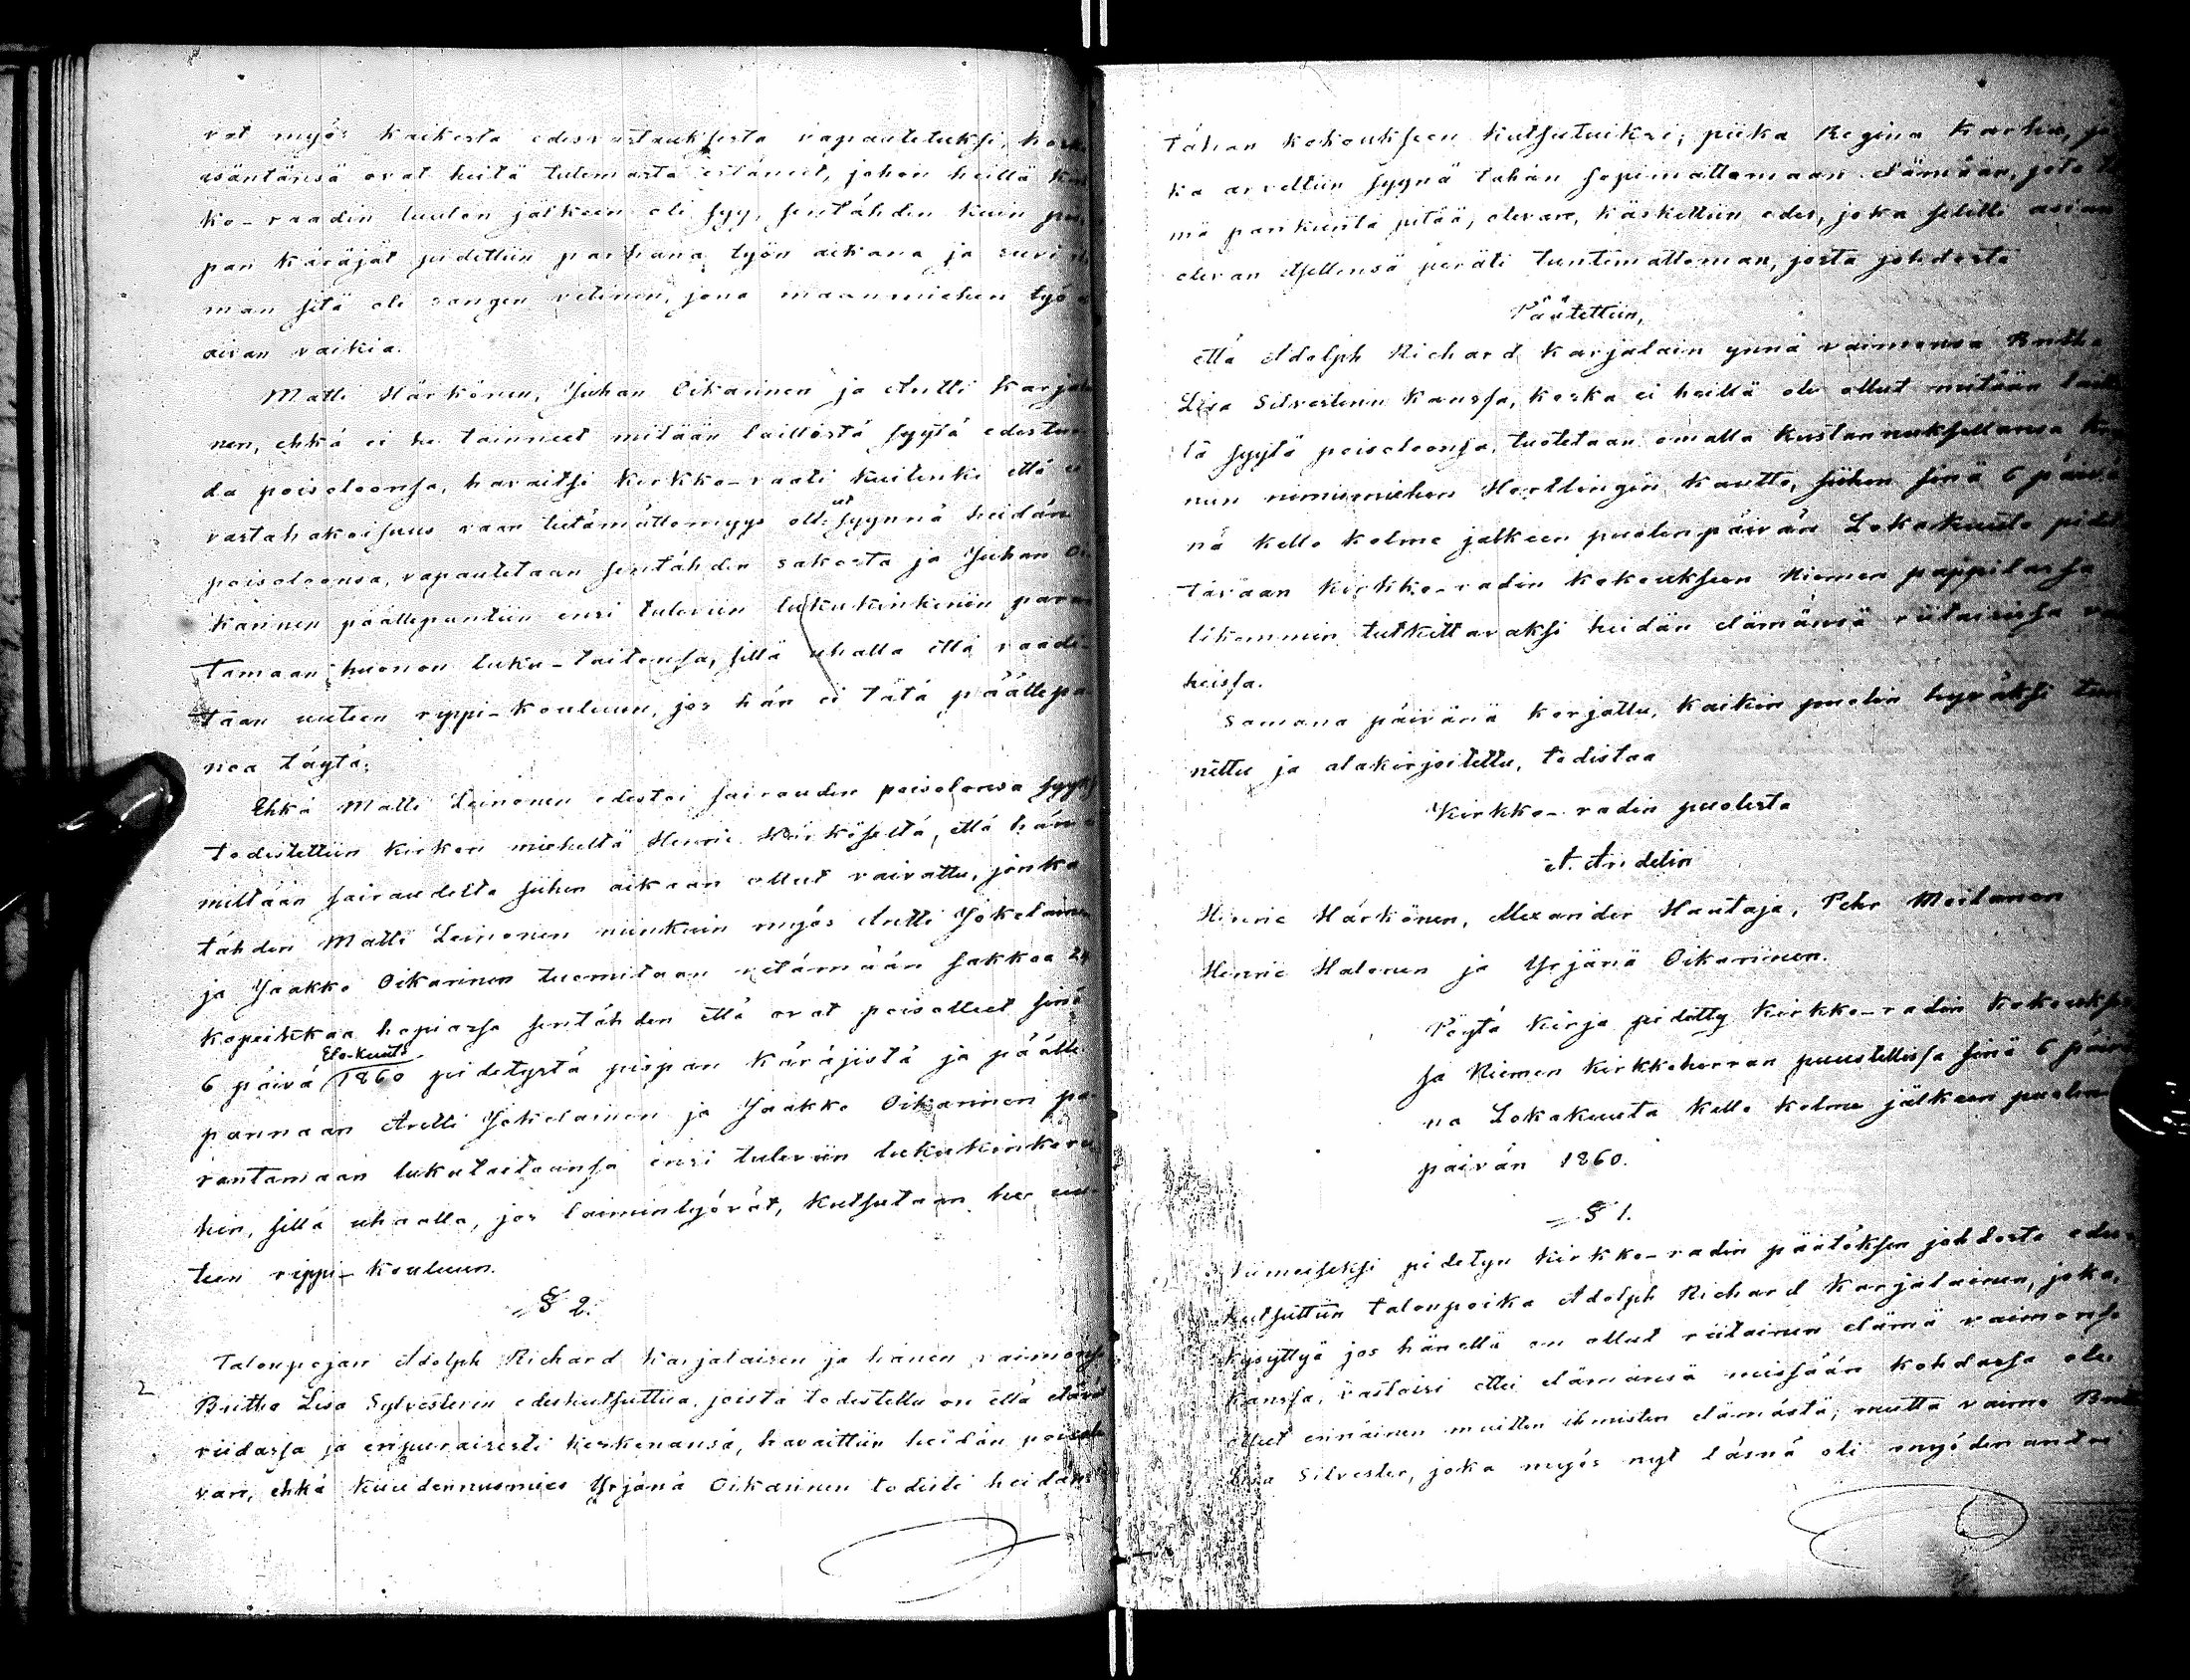 vat myös kaikesta edesvastauksesta vapautetuksi, koska
isäntänsä ovat heitä tulemasta estäneet, johon heillä
ko-raadin luulon jälkeen oli syy, sentähden kuin
pan käräjät pidettiin parhana työn aikana ja
man sitä oli sangen vetinen, jona maanmiehen työ
aivan vaikia.
Matti Härkönen, Juhan Oikarinen ja Antti Karjalai
nen, ehkä ei he tainneet mitään laillista syytä edestuo
da poisoloonsa, havaitsi kirkko-raati kuitenki että ei
vastahakoisuus vaan tietämättömyys ollut syynnä heidän
poisoloonsa, vapautetaan sentähden sakosta ja Juhan Oi
karinen päällepantiin ensi tuleviin lukukinkeriin paran
tamaan huonon luku-taitonsa, sillä uhalla että vaadi-
taan uuteen rippi-kouluun, jos hän ei tätä päällepa
noa täytä.
Ehkä Matti Leinonen edestoi sairauden poisolonsa syyksi
todistettiin kirkon mieheltä Henric Härköseltä, että hän
miltään sairaudelta siihen aikaan ollut vaivattu, jonka
tähden Matti Leinonen niinkuin myös Antti Jokelainen
ja Jaakko Oikarinen tuomitaan vetämään sakkoa 24
kopeikkaa hopiassa sentähden että ovat poisolleet sinä
6 päivä Elo-kuuta 1860 pidetystä pispan käräjistä ja päälle
pannaan Antti Jokelainen ja Jaakko Oikarinen pa-
rantamaan lukutaitoansa ensi tuleviin lukukinkerei
hin, sillä uhaalla, jos laiminlyövät, kutsutaan he uu-
teen rippi-kouluun.
§ 2.
2 Talonpojan Adolph Richard Karjalaisen ja hänen vaimonsa
Britha Lisa Sylvesterin edeskutsuttua, joista todistettu on että elävät
riidassa ja eripuraisesti keskenänsä, havaittiin heidän poisole
van, ehkä kuudennusmies Yrjänä Oikarinen todisti heidän
tähän kokoukseen kutsutuiksi; piika Regina Karhu, jo
ka arveltiin syynä tähän sopimattomaan elämään, jota tä
mä pariskunta pitää, olevan, käskettiin edes, joka selitti asian
olevan itsellensä peräti tuntemattoman, josta johdosta
Päätettiin,
että Adolph Richard Karjalain ynnä vaimonsa Britha
Lisa Silvesterin kanssa, koska ei heillä ole ollut mitään laillis
ta syytä poisoloonsa, tuotetaan omalla kustannuksellansa
nun nimismiehen Hertlingin kautta, siihen sinä 6 päivä
nä kello kolme jälkeen puolenpäivän Lokakuuta pidet
tävään kirkko-radin kokoukseen Niemen pappilassa
likemmin tutkittavaksi heidän elämänsä riitaisissa vai
heissa.
Samana päivänä korjattu, kaikin puolin hyväksi tun
nettu ja alakirjoitettu, todistaa
Kirkko-radin puolesta
A. Andelin
Henric Härkönen, Alexander Hautaja, Pehr Moilanen
Henric Halonen ja Yrjänä Oikarinen.
Pöytä kirja pidetty kirkko-radin kokoukses
sa Niemen kirkkoherran puustellissa sinä 6 päivä
nä Lokakuuta kello kolme jälkeen puolen-
päivän 1860.
§ 1.
Viimeiseksi pidetyn kirkko-radin päätöksen johdosta edes
kutsuttiin talonpoika Adolph Richard Karjalainen, joka,
kysyttyä jos hänellä on ollut riitainen elämä vaimonsa
kanssa, vastaisi ettei elämänsä missään kohdassa ole
ollut erinäinen muitten ihmisten elämästä; mutta vaimo Britha
Lisa Silvester, joka myös nyt läsnä oli myöden antoi